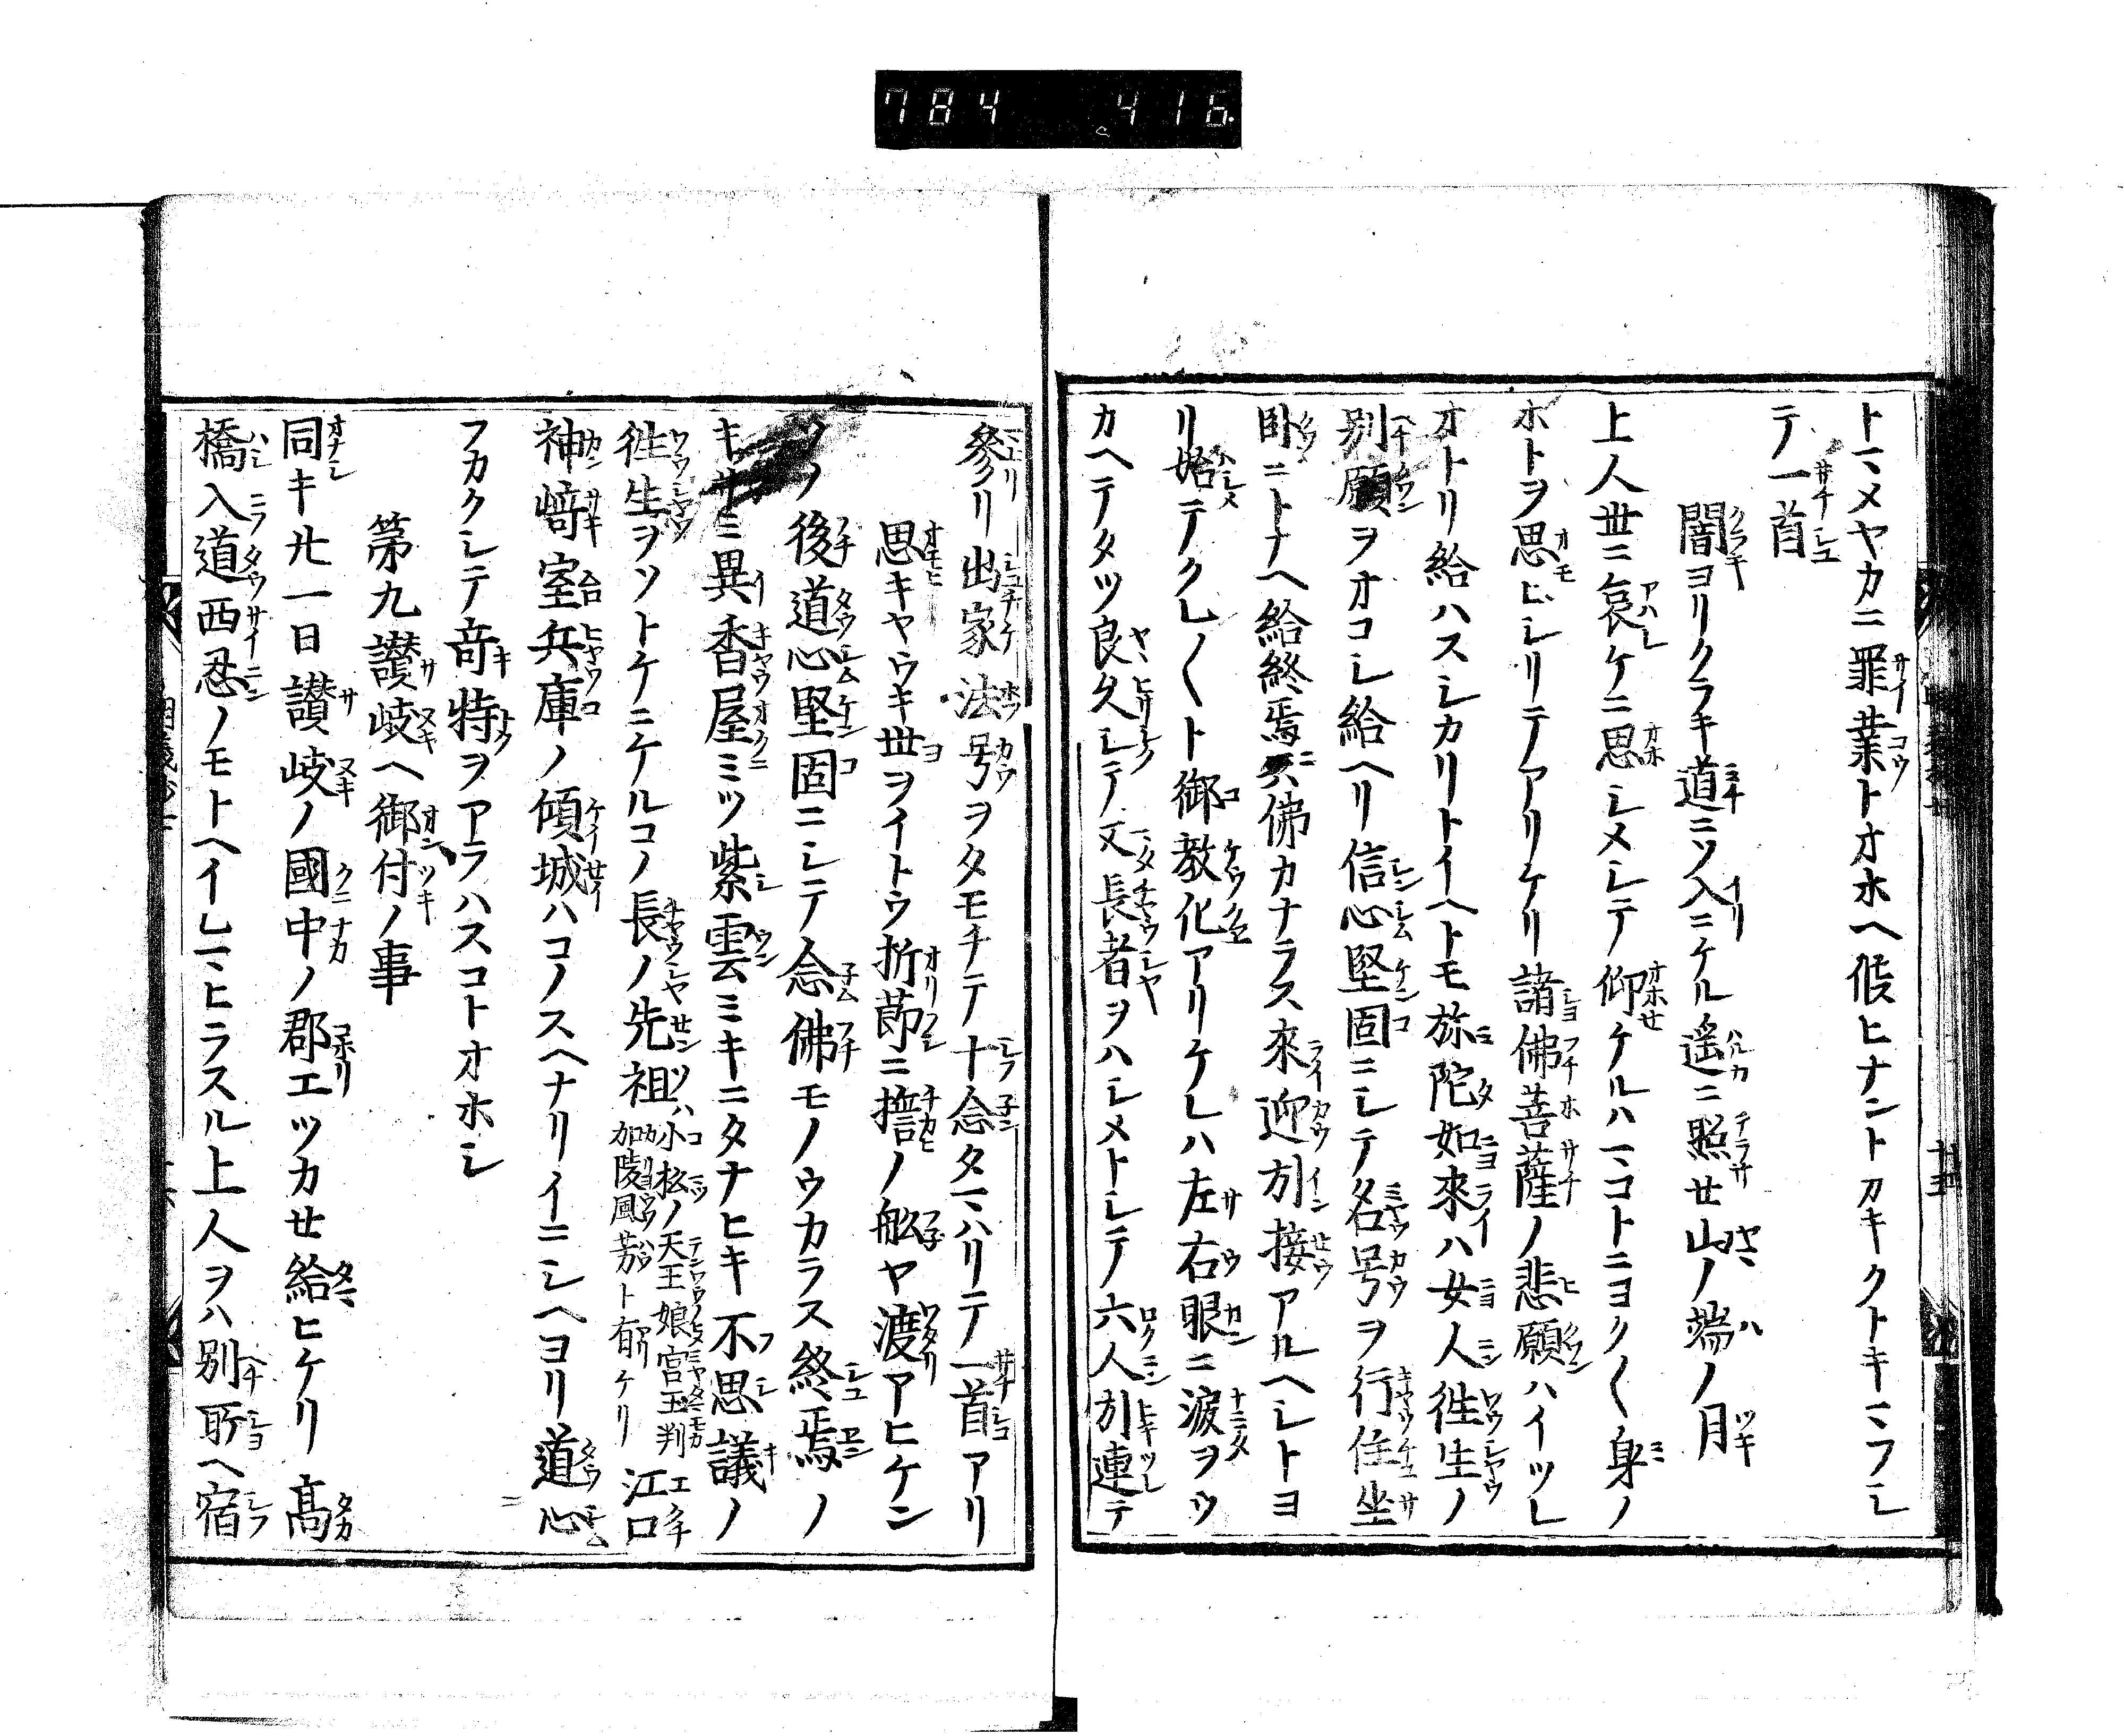 784 416
トマメヤカニ罪業トオホヘ候ヒナントカキクトキマフシ
テ一首
闇ヨリクラキ道ニソ入ニケル遥ニ照セ山ノ端ノ月
上人世ニ哀ケニ思シメシテ仰ケルハマコトニヨク〱身ノ
ホトヲ思ヒシリテアリケリ諸佛菩薩ノ悲願ハイツレ
オトリ給ハスシカリトイヘトモ弥陀如來ハ女人徃生ノ
別願ヲオコシ給ヘリ信心堅固ニシテ名号ヲ行住坐
卧ニトナヘ給終焉ニ佛カナラス來迎引接アルヘシトヨ
リ始テクレ〱ト御教化アリケレハ左右眼ニ淚ヲウ
カヘテタツ良久シテ又長者ヲハシメトシテ六人引連テ
參リ出家法号ヲタモチテ十念タマハリテ一首アリ
思キヤウキ世ヲイトウ折節ニ擔ノ舩ヤ渡アヒケン
ソノ後道心堅固ニシテ念佛モノウカラス終焉ノ
キサミ異香屋ミツ紫雲ミキニタナヒキ不思議ノ
徃生ヲソトケニケルコノ長ノ先祖ハ小松ノ天王娘宮玉判加陵風芳ト有ケリ江口
神﨑室兵庫ノ傾城ハコノスヘナリイニシヘヨリ道心
フカクシテ竒特ヲアラハスコトオホシ
第九讃岐ヘ御付ノ事
同キ廾一日讃岐ノ國中ノ郡エツカせ給ヒケリ髙
橋入道西忍ノモトヘイレマヒラスル上人ヲハ別所ヘ宿